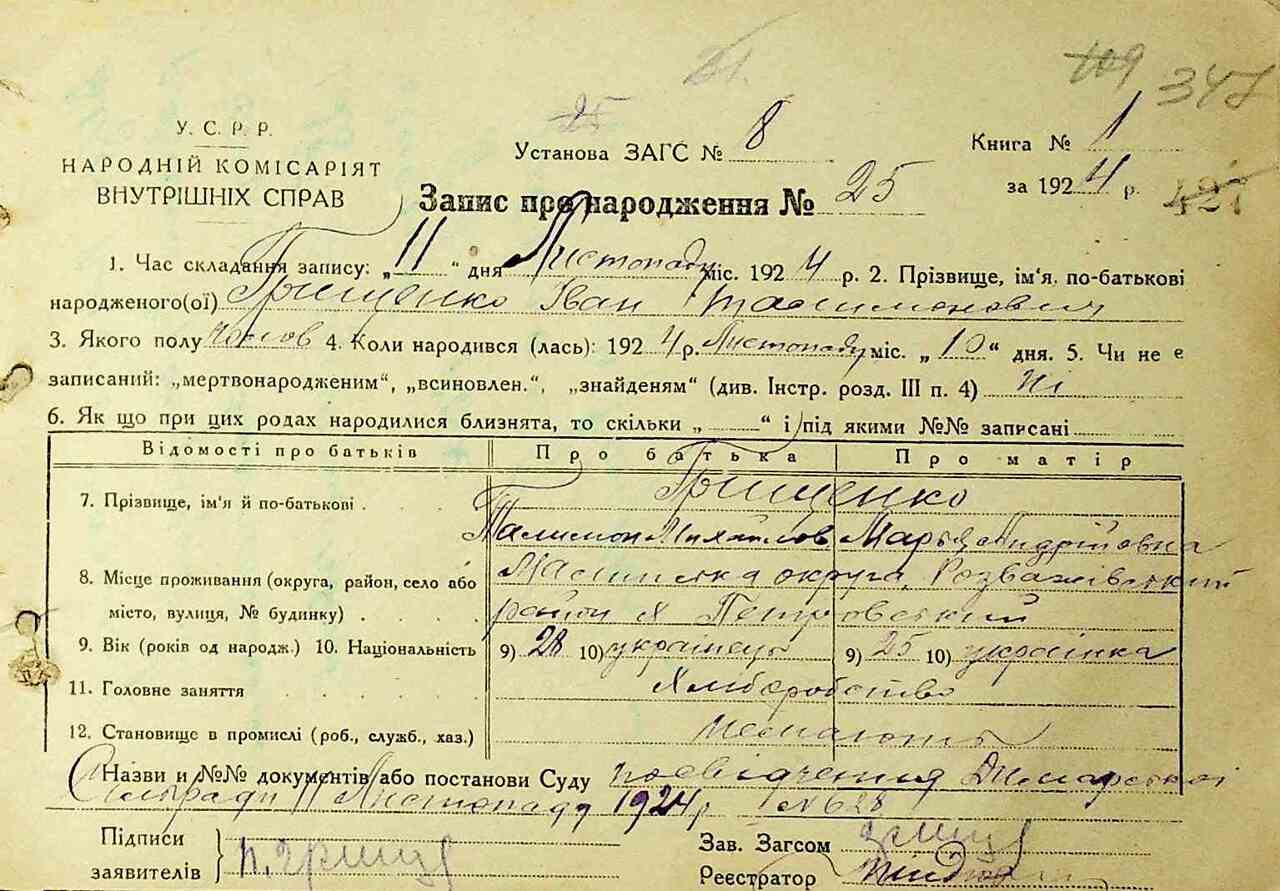 25
119 347
У. С. Р. Р.
НАРОДНІЙ КОМІСАРІЯТ
ВНУТРІШНІХ СПРАВ
Установа ЗАГС № 8
Книга № 1
за 1924 р.
427
Запис про народження № 25
1. Час складання запису: „11“ дня Листопаду міс. 1924 р. 2. Прізвище, ім'я, по-батькові
народженого(ої) Грищенко Іван
3. Якого полу 4. Коли народився (лась): 1924 р. Листопаду міс. „10“ дня. 5. Чи не є
записаний: „мертвонародженим“, „всиновлен.“, „знайденям“ (див. Інстр. розд. III п. 4) Ні
6. Як що при цих родах народилися близнята, то скільки „ “ і під якими №№ записані
Відомості про батьків Про батька Про матір
7. Прізвище, ім'я й по-батькові Грищенко
Михайлов Марья Андріївна
8. Місце проживання (округа, район, село або округа, Розважівський
місто, вулиця, № будинку) район х Петровський
9. Вік (років од народж.) 10. Національність 9) 28 10) українець 9) 25 10) українка
11. Головне заняття Хліборобство
12. Становище в промислі (роб., служб., хаз.)
Назви и №№ документів або постанови Суду посвідчення
Сільради 11 Листопаду 1924 р № 628
Підписи
заявителів
Зав. Загсом
Реєстратор